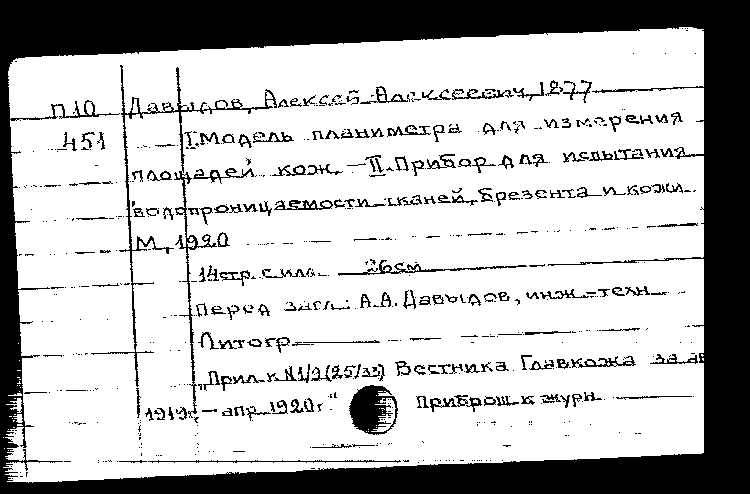 П10 Давыдов, Алексей Алексеевич, 1877
451 I. Модель планиметра для измерения
площадей кож. — II. Прибор для испытания
водопроницаемости тканей, брезента и кожи.
М., 1920
14 стр. с илл. 26 см
Перед загл.: А.А. Давыдов, инж.-техн
Литогр.
"Прил. к N1/9 Вестника Главкожа за
1919г. — апр. 1920г." Приброш. к журн.